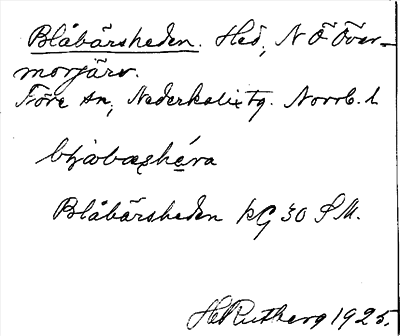 Blåbärsheden. Hed, N Ö Över-
morjärv.
Töre sn, Nederkalix tg. Norrb. l
Blåbärsheden kG 30 S M.
H Rutberg 1925.